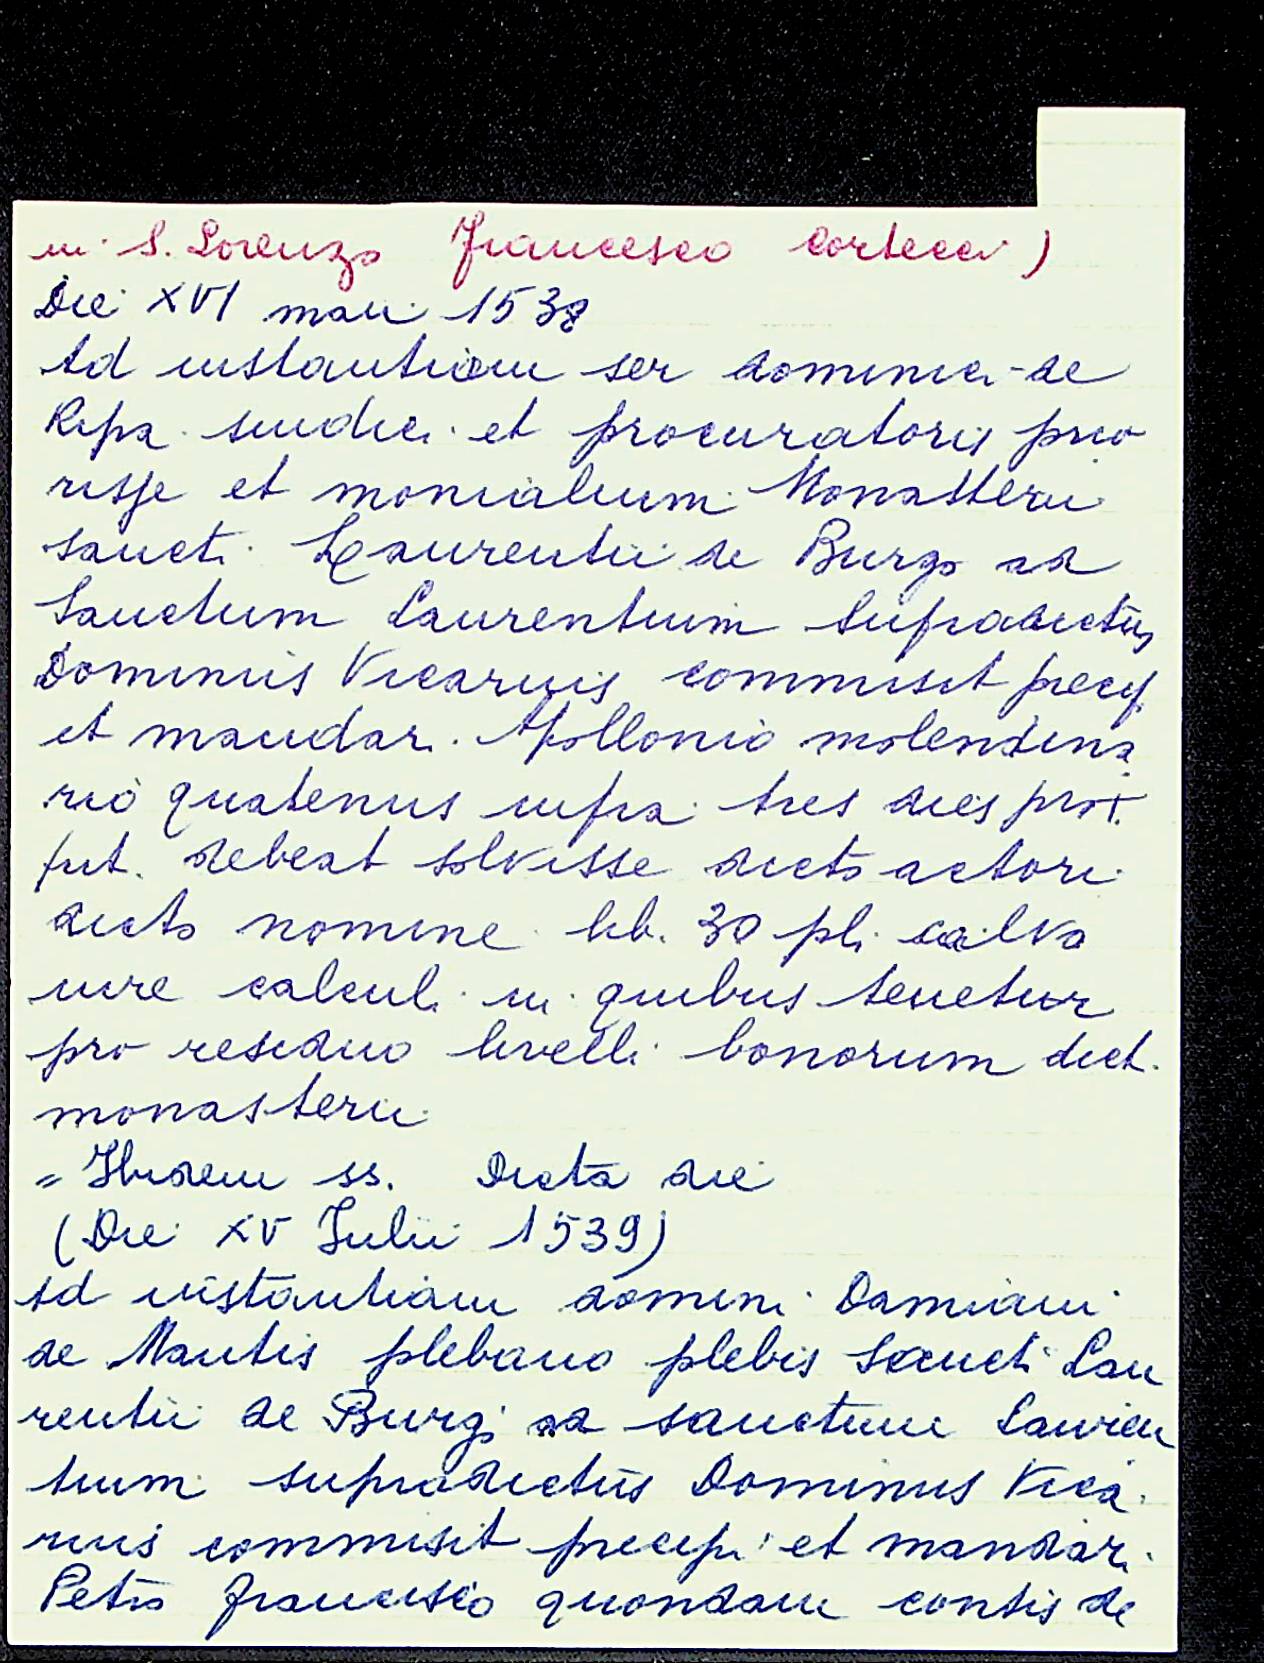 in S. Lorenzo Francesco Corteccii)
Die XVI maii 1538
Ad instantiam ser dominici de
Ripa sindici et procuratoris prio
risse et monialium Monasterii
sancti Laurentii de Burgo ad
Sanctum Laurentium supradictus
Dominus Vicarius commisit precip
et mandari Apollonio molendina
rio quatenus infra tres dies prox.
fut. debeat solvisse dicto actori
dicto nomine lib. 30 pl. salvo
iure calculi in quibus tenetur
pro residuo livelli bonorum dict.
monasterii
= Ibidem ss. Dicta die
(Die XV Julii 1539)
Ad instantiam domini Damiani
de Mantis plebano plebis Sancti Lau
rentii de Burgi ad sanctum Lauren
tium supradictus Dominus Vica
rius commisit precipi et mandari
Petro Francisco quondam contis de